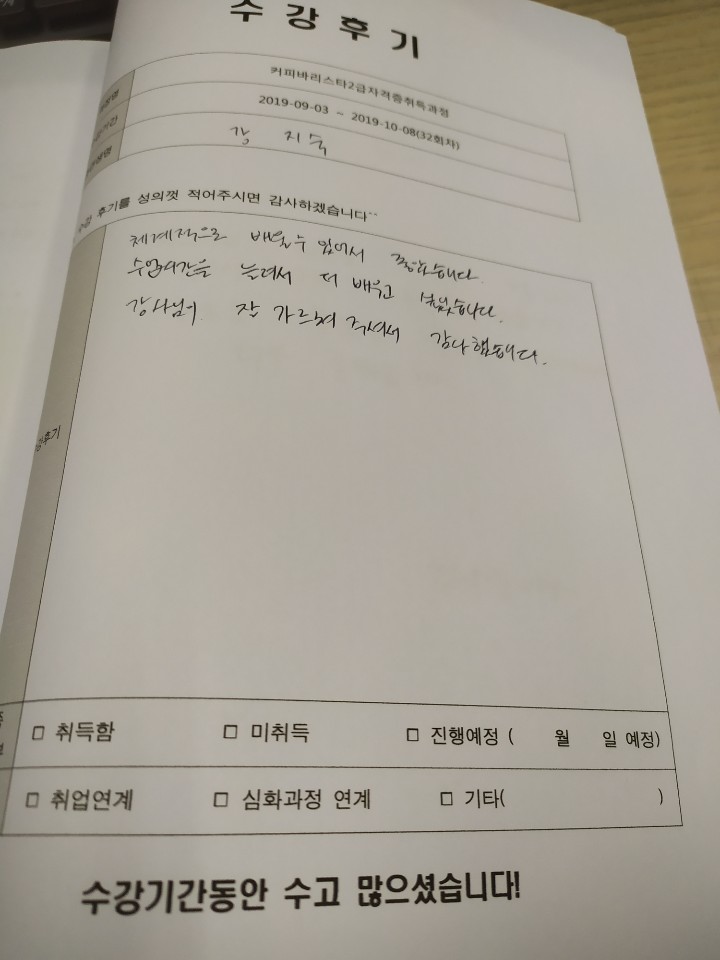 수강후기
커피바리스타2급자격증취득과정
2019-09-03 ~ 2019-10-08(32회차)
강 지숙
후기를 성의껏 적어주시면 감사하겠습니다~
체계적으로 배울수 있어서 좋았습니다.
수업시간을 늘려서 더 배우고 싶었습니다.
강사님이 잘 가르쳐 주셔서 감사했습니다.
후기
□ 취득함 □ 미취득 □ 진행예정 ( 월 일 예정)
□ 취업연계 □ 심화과정 연계 □ 기타( )
수강기간동안 수고 많으셨습니다!